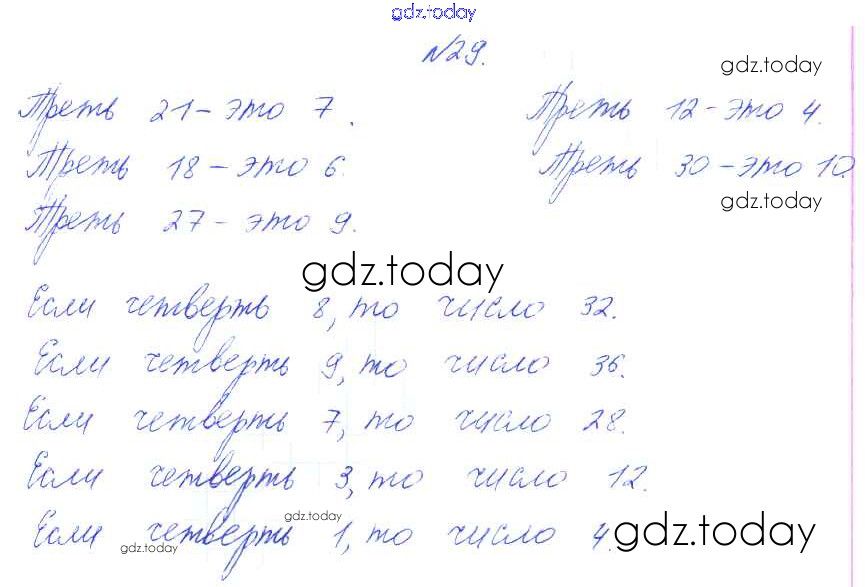 gdz.today
№29.
gdz.today
Треть 21 – это 7. Треть 12 – это 4.
Треть 18 – это 6. Треть 30 – это 10.
gdz.today
Треть 27 – это 9.
gdz.today
Если четверть 8, то число 32.
Если четверть 9, то число 36.
Если четверть 7, то число 28.
Если четверть 3, то число 12.
gdz.today
Если четверть 1, то число 4.
gdz.today
gdz.today